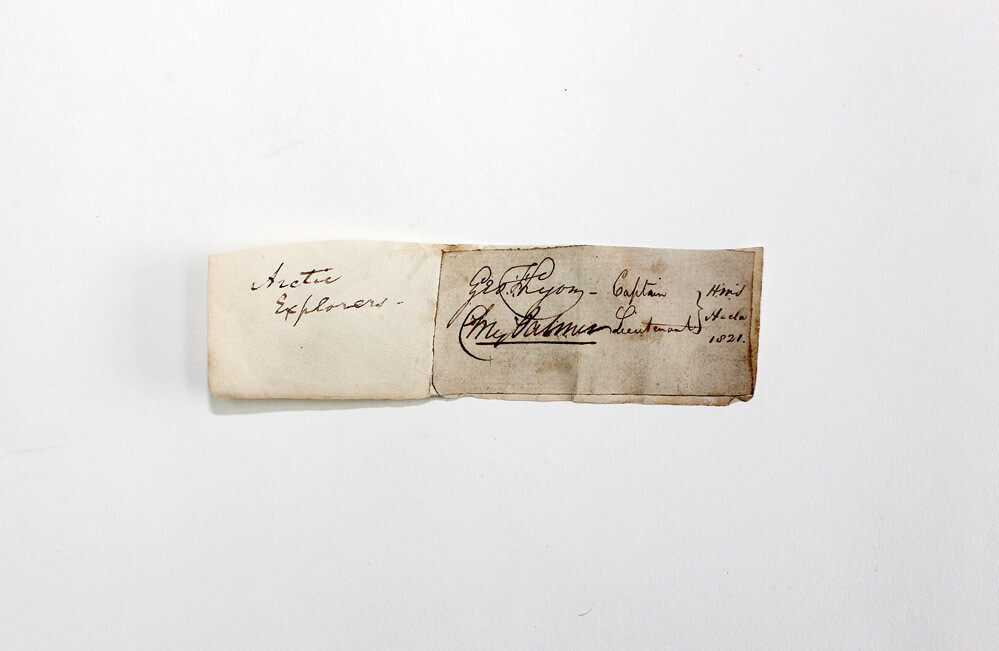 Arctic
Explorers -
Geo. F. Lyon - Captain
Chas Palmer Lieutenant
HMS
Hecla
1821.